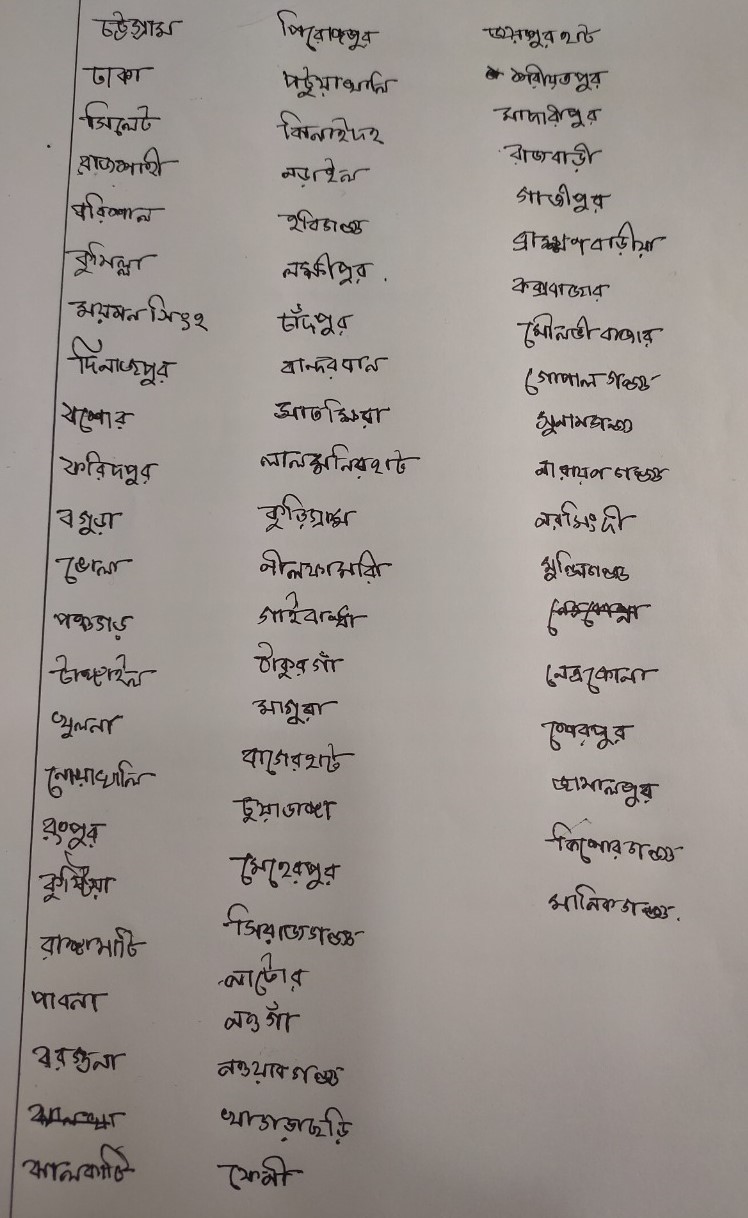 চট্টগ্রাম
ঢাকা
সিলেট
রাজশাহী
বরিশাল
কুমিল্লা
ময়মনসিংহ
দিনাজপুর
যশোর
ফরিদপুর
বগুড়া
ভোলা
পঞ্চগড়
টাঙ্গাইল
খুলনা
নোয়াখালি
রংপুর
কুষ্টিয়া
রাঙ্গামাটি
পাবনা
বরগুনা
ঝালকাঠি
পিরোজপুর
পটুয়াখালি
ঝিনাইদহ
নড়াইল
হবিগঞ্জ
লক্ষীপুর.
চাঁদপুর
বান্দরবান
সাতক্ষিরা
লালমনিরহাট
কুড়িগ্রাম
নীলফামারী
গাইবান্ধা
ঠাকুরগাঁ
মাগুরা
বাগেরহাট
চুয়াডাঙ্গা
মেহেরপুর
সিরাজগঞ্জ
নাটোর
নওগাঁ
নওয়াবগঞ্জ
খাগড়াছড়ি
ফেনী
জয়পুরহাট
শরীয়তপুর
মাদারীপুর
রাজবাড়ী
গাজীপুর
ব্রাহ্মণবাড়ীয়া
কক্সবাজার
মৌলভীবাজার
গোপালগঞ্জ
সুনামগঞ্জ
নারায়ণগঞ্জ
নরসিংদী
মুন্সিগঞ্জ
নেত্রকোনা
শেরপুর
জামালপুর
কিশোরগঞ্জ
মানিকগঞ্জ.